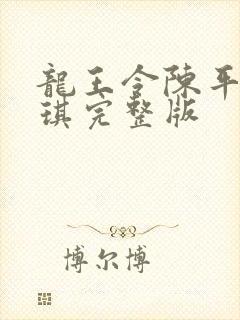 龍王令陳平
琪完整版
博尔博